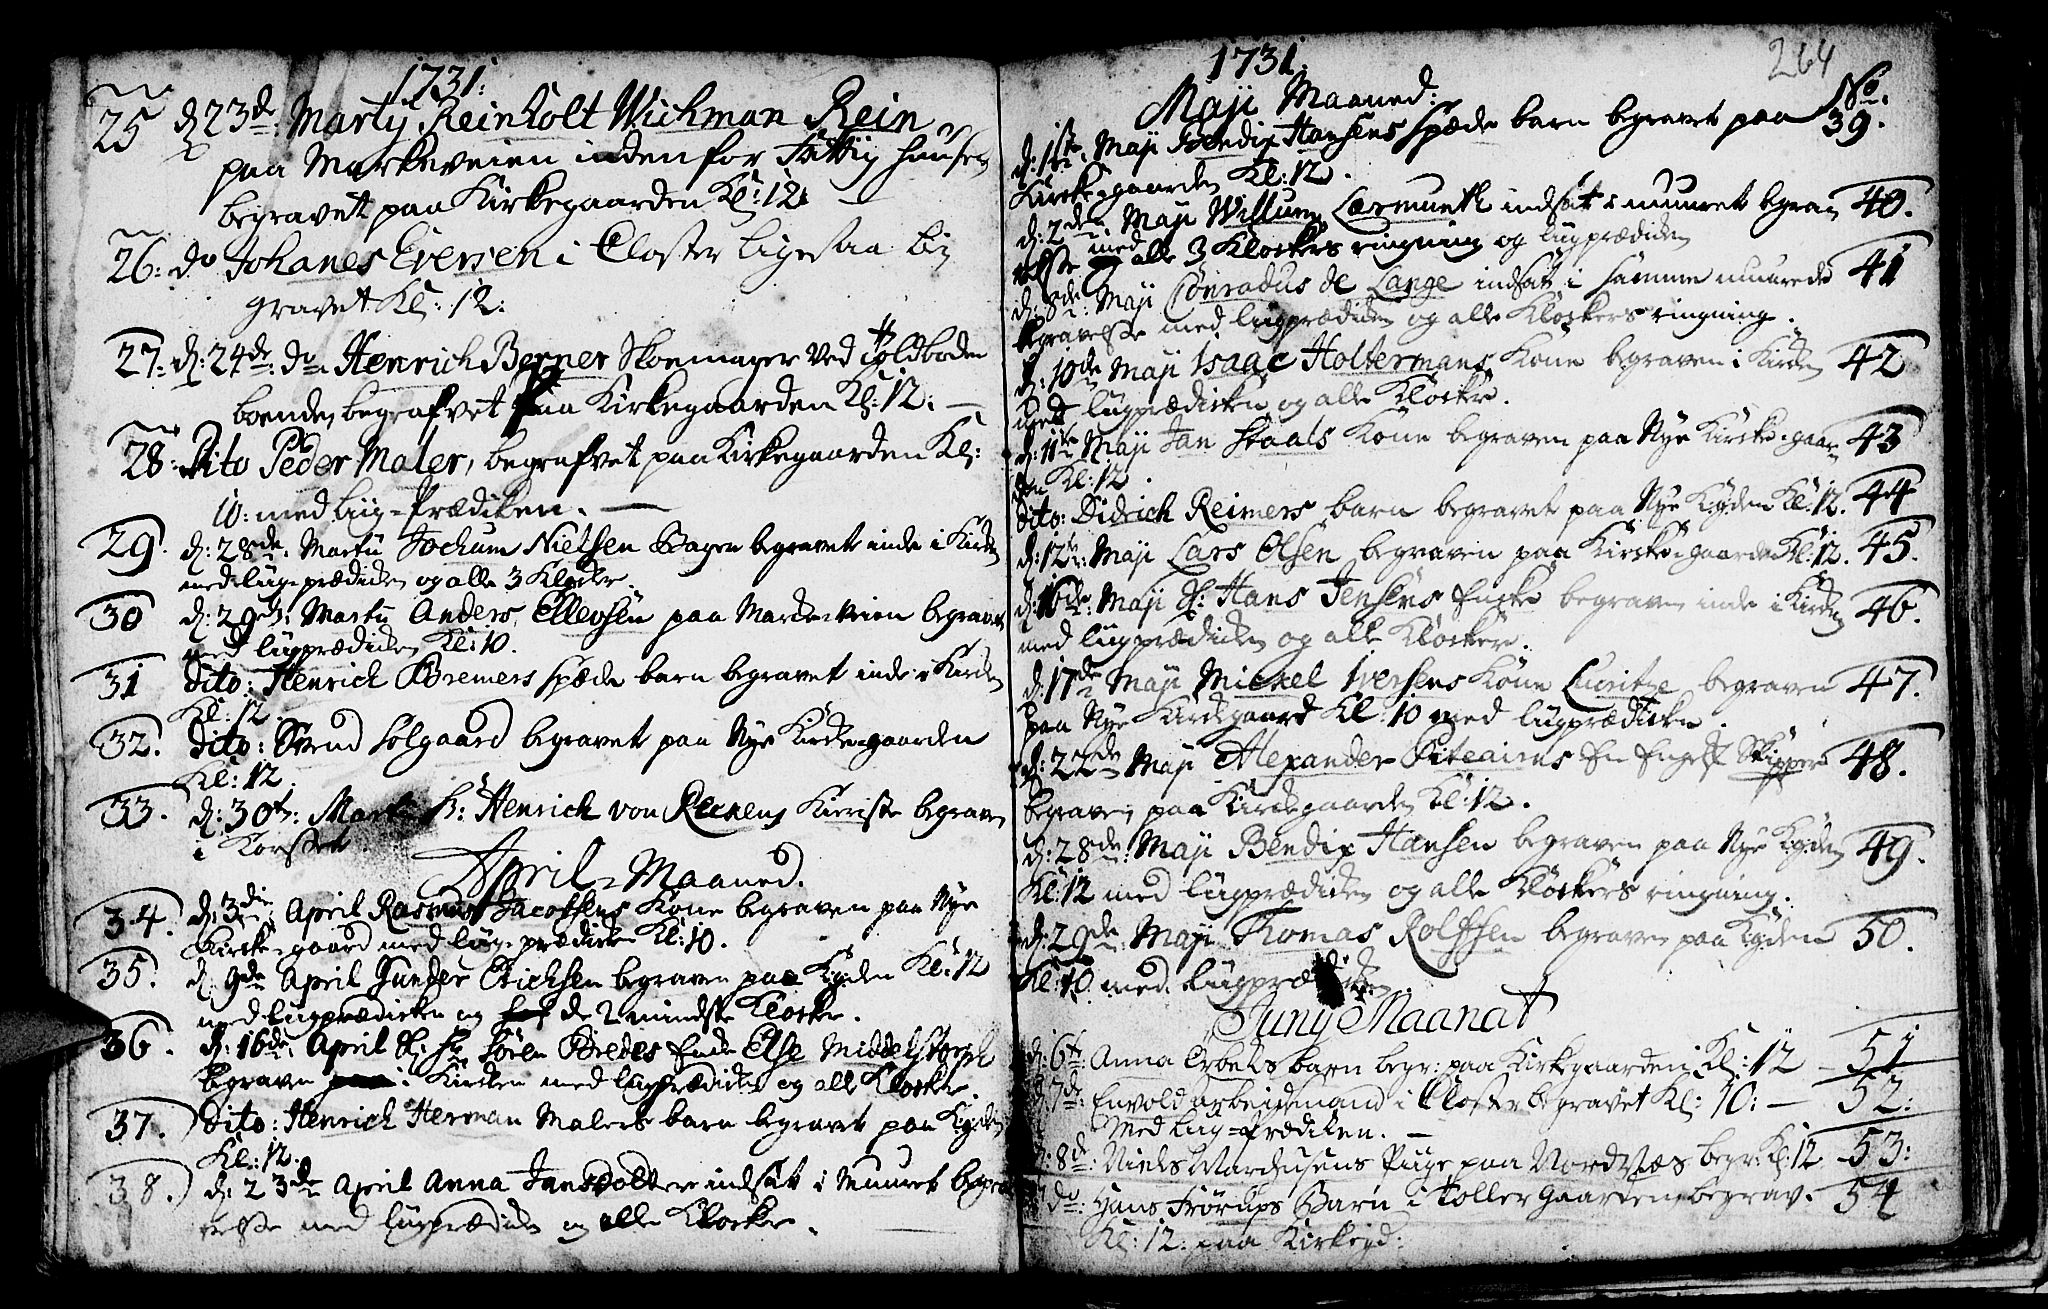 1731:
25 d 23de: Martÿ. Reinholt Wichman Rein
paa Markeveien inden for Fattig Huuset
begravet paa Kirkegaarden Kl: 12.
26: do Johanes Eversen i Closter
gravet Kl: 12.
27: d: 24de: do Henrich Berner Skoemager Ved Toldboden
boende, begrafvet paa Kirkegaarden Kl: 12: —
28: Dito Peder Maler, begrafvet paa Kirkegaarden Kl:
10: med Liig-Prædiken. —
29. d: 28de: Martii Jochum Nielsen Bager begravet inde i Kirken
med liigprædiken og alle 3 Klocker.
30 d: 29de: Martii Anders Ellevsen paa Marckeveien begravet
med liigprædicken Kl: 10.
31 Dito: Henrich Bremers spæde barn begravet inde i Kircken
Kl: 12.
32. Dito: Svend Solgaard begravet paa Nye Kircke-gaarden
Kl: 12.
33. d: 30t: Martii Henrich von Reckens Kieriste begraven
i Korsset.
April-Maaned.
34. d: 3die: April Rasmus Jacobsens Kone begraven paa Nye
Kircke-gaard med liig-prædicken Kl: 10.
35. d: 9de April Gunder Erichsen begraven paa Kgden Kl: 12
med liigprædicken og de 2 mindste Klocker.
36. d: 16de: April Sl: Hr Sören Bredes Encke Else Middelstorph
begraven i Kircken med liigprædicken og alle Klocker.
37. Dito: Henrich Herman Malers barn begravet paa Kgden
Kl: 12.
38. d: 23de April Anna Jans indsat i Muuret begra
velsse med liigprædicken og alle Klocker.
264
1731:
Maji Maaned: No.
d: 1ste: Maji Bendix Hansens spæde barn begravet paa 39.
Kircke-gaarden Kl: 12.
d: 2den Maji Willum Lærmunth indsat i muuret begra 40.
velsse med alle 3 Klockers ringning og liigprædicken
d: 8de: Maji Conradus de Lange indsat i samme muurede 41
begravelsse med liigprædicken og alle Klockers ringning.
d: 10de Maji Isaac Holtermans Kone begraven i Kircken 42
med liigprædicken og alle Klocker.
d: 11te Maji Jan Staals Kone begraven paa Nye Kircke-gaar 43
den Kl: 12.
Dito: Didrich Reimers barn begravet paa Nye Kgden Kl: 12. 44
d: 12te: Maji Lars Olsen begraven paa Kircke-gaarden Kl: 12. 45.
d: 16de: Maji Sl: Hans Jensens Encke begraven inde i Kircken 46.
med liigprædicken og alle Klocker.
d: 17de Maji Mickel Iversens Kone Lucritze begraven 47.
paa Nye Kirckegaard Kl: 10 med liigprædicken.
d: 22de Maji Alexander Piteairns En Engelsk Skipper 48.
begraven paa Kirckegaarden Kl: 12.
d: 28de: Maji Bendix Hansen begraven paa Nye Kgden 49.
Kl: 12 med liigprædicken og alle Klockers ringning.
d: 29de: Maji Thomas Rolfsen begraven paa Kgden 50.
Kl: 10. med liigprædicken.
Juny Maanat
d: 6t: Anna Erbels barn begr: paa Kirkegaarden Kl: 12 — 51
d: 7de: Envold arbeidsmand i Closter begravet Kl: 10: — 52:
Med Liig-Prædiken. —
d: 8de: Niels Mardusens Piige paa Nordnæs begr: Kl: 12 53:
do: Hans Frörups Barn i Toller Gaarden begrav. 54
Kl: 12: paa Kirkegd: